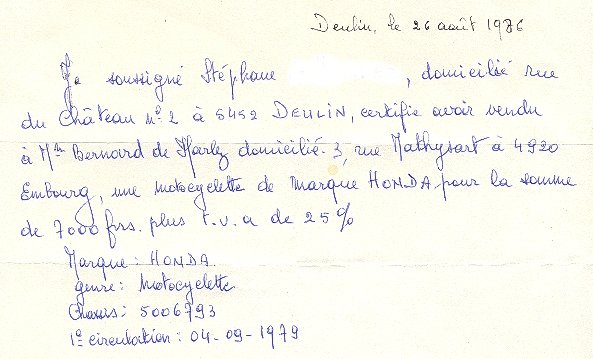 Deulin, le 26 août 1986
Je soussigné Stéphane , domicilié rue
du Château n° 2 à 5452 DEULIN, certifie avoir vendu
à Mr Bernard de Harlez domicilié 3, rue Mathysart à 4920
Embourg, une motocyclette de marque HONDA pour la somme
de 7000 frs. plus t.v.a de 25%
Marque : HONDA
genre : Motocyclette
Chassis : 5006793
1e circulation : 04-09-1979